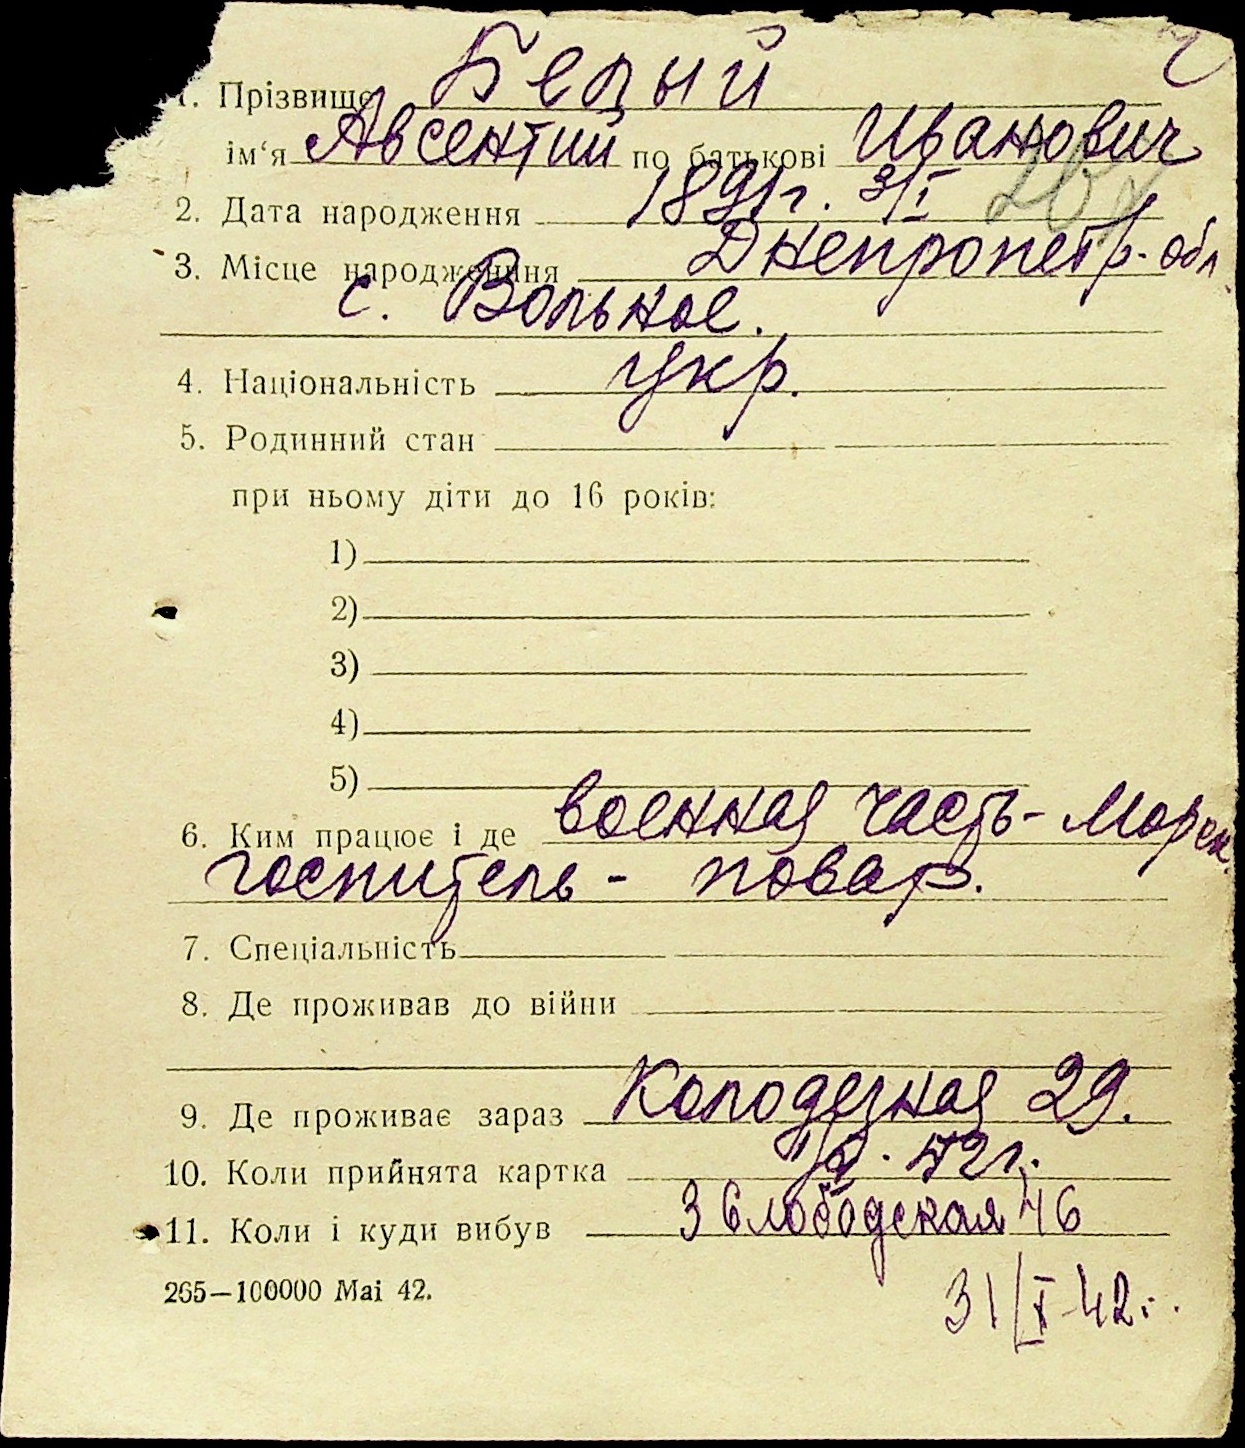 1. Прізвище Белый
ім'я Авсентий по батькові Иванович
2. Дата народження 1891г. 3/I
3. Місце народження Днепропетр. обл
с. Вольное.
4. Національність Укр.
5. Родинний стан
при ньому діти до 16 років:
1)
2)
3)
4)
5)
6. Ким працює і де военная часть - Морск.
госпитель - повар.
7. Спеціальність
8. Де проживав до війни
9. Де проживає зараз Колодезная 29.
10. Коли прийнята картка 42г.
11. Коли і куди вибув 3 Слободская 46
265—100000 Mai 42.
31/X-42г.